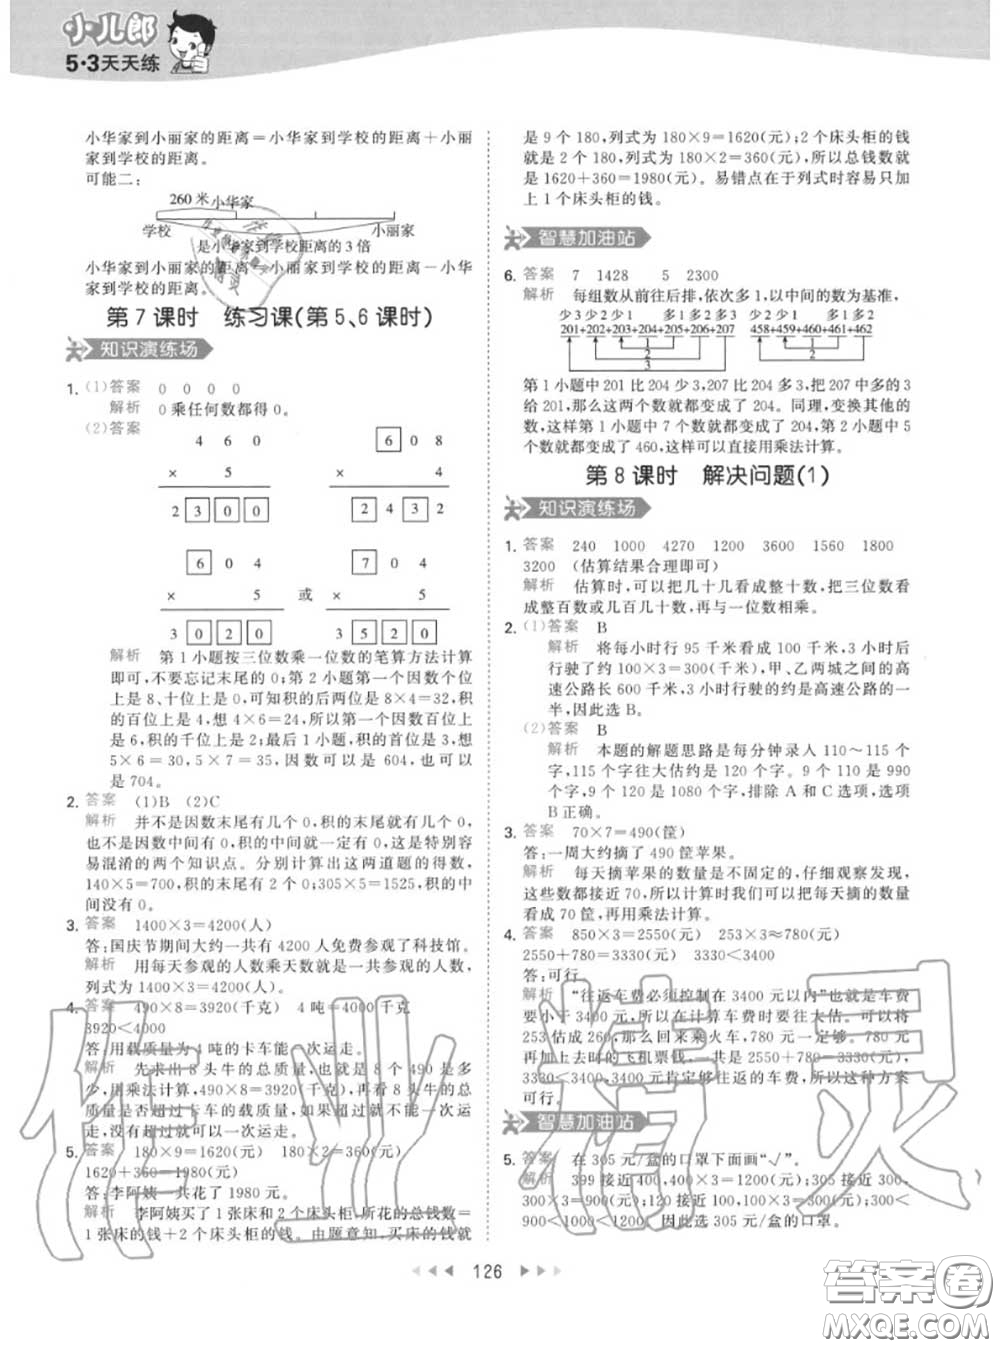 小儿郎
5·3天天练
小华家到小丽家的距离=小华家到学校的距离+小丽
家到学校的距离。
可能二:
260 米 小华家
学校 小丽家
是小华家到学校距离的 3 倍
小华家到小丽家的距离=小丽家到学校的距离-小华
家到学校的距离。
第 7 课时 练习课(第 5、6 课时)
知识演练场
1. (1)答案 0 0 0 0
解析 0 乘任何数都得 0。
(2)答案
4 6 0 6 0 8
× 5 × 4
2 3 0 0 2 4 3 2
6 0 4 7 0 4
× 5 或 × 5
3 0 2 0 3 5 2 0
解析 第 1 小题按三位数乘一位数的笔算方法计算
即可,不要忘记末尾的 0;第 2 小题第一个因数个位
上是 8,十位上是 0,可知积的后两位是 8×4=32,积
的百位上是 4,想 4×6=24,所以第一个因数百位上
是 6,积的千位上是 2;最后 1 小题,积的首位是 3,想
5×6=30,5×7=35,因数可以是 604,也可以
是 704。
2. 答案 (1)B (2)C
解析 并不是因数末尾有几个 0,积的末尾就有几个 0,
也不是因数中间有 0,积的中间就一定有 0,这是特别容
易混淆的两个知识点。分别计算出这两道题的得数,
140×5=700,积的末尾有 2 个 0;305×5=1525,积的中
间没有 0。
3. 答案 1400×3=4200(人)
答:国庆节期间大约一共有 4200 人免费参观了科技馆。
解析 用每天参观的人数乘天数就是一共参观的人数,
列式为 1400×3=4200(人)。
4. 答案 490×8=3920(千克) 4 吨=4000 千克
3920<4000
答:用载质量为 4 吨的卡车能一次运走。
解析 先求出 8 头牛的总质量,也就是 8 个 490 是多
少,用乘法计算,490×8=3920(千克),再看 8 头牛的总
质量是否超过卡车的载质量,如果超过就不能一次运
走,没有超过就可以一次运走。
5. 答案 180×9=1620(元) 180×2=360(元)
1620+360=1980(元)
答:李阿姨一共花了 1980 元。
解析 李阿姨买了 1 张床和 2 个床头柜,所花的总钱数=
1 张床的钱+2 个床头柜的钱。由题意知,买床的钱就
是 9 个 180,列式为 180×9=1620(元);2 个床头柜的钱
就是 2 个 180,列式为 180×2=360(元),所以总钱数就
是 1620+360=1980(元)。易错点在于列式时容易只加
上 1 个床头柜的钱。
智慧加油站
6. 答案 7 1428 5 2300
解析 每组数从前往后排,依次多 1,以中间的数为基准,
少 3 少 2 少 1 多 1 多 2 多 3 少 2 少 1 多 1 多 2
201+202+203+204+205+206+207 458+459+460+461+462
1
2
3
1
2
第 1 小题中 201 比 204 少 3,207 比 204 多 3,把 207 中多的 3
给 201,那么这两个数就都变成了 204。同理,变换其他的
数,这样第 1 小题中 7 个数就都变成了 204,第 2 小题中 5
个数就都变成了 460,这样可以直接用乘法计算。
第 8 课时 解决问题(1)
知识演练场
1. 答案 240 1000 4270 1200 3600 1560 1800
3200 (估算结果合理即可)
解析 估算时,可以把几十几看成整十数,把三位数看
成整百数或几百几十数,再与一位数相乘。
2. (1)答案 B
解析 将每小时行 95 千米看成 100 千米,3 小时后
行驶了约 100×3=300(千米),甲、乙两城之间的高
速公路长 600 千米,3 小时行驶的约是高速公路的一
半,因此选 B。
(2)答案 B
解析 本题的解题思路是每分钟录入 110~115 个
字,115 个字往大估约是 120 个字。9 个 110 是 990
个字,9 个 120 是 1080 个字,排除 A 和 C 选项,选项
B 正确。
3. 答案 70×7=490(筐)
答:一周大约摘了 490 筐苹果。
解析 每天摘苹果的数量是不固定的,仔细观察发现,
这些数都接近 70,所以计算时我们可以把每天摘的数量
看成 70 筐,再用乘法计算。
4. 答案 850×3=2550(元) 253×3≈780(元)
2550+780=3330(元) 3330<3400
答:可行。
解析 “往返车费必须控制在 3400 元以内”也就是车费
要小于 3400 元,所以在计算车费时要往大估。可以将
253 估成 260,那么回来乘火车,780 元一定够。780 元
再加上去时的飞机票钱,一共是 2550+780=3330(元),
3330<3400,3400 元肯定够往返的车费,所以这种方案
可行。
智慧加油站
5. 答案 在 305 元/盒的口罩下面画“√”。
解析 399 接近 400,400×3=1200(元);305 接近 300,
300×3=900(元);120 接近 100,100×3=300(元);300<
<900<1000<1200。因此选 305 元/盒的口罩。
126
作业精灵
答案圈
MXQE.COM